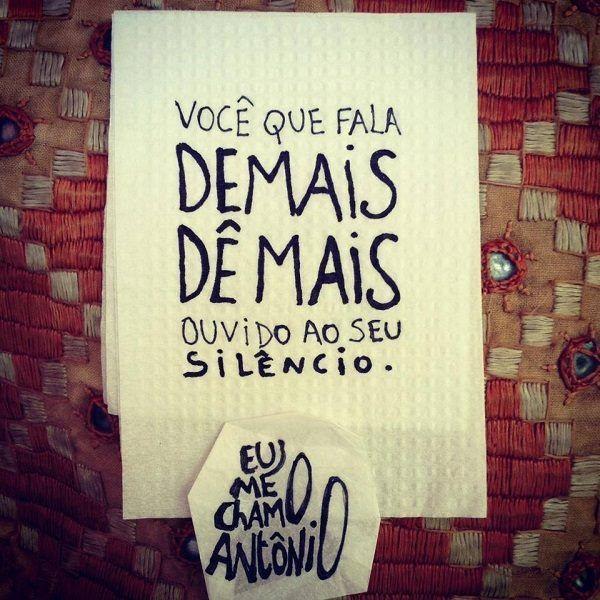 VOCÊ QUE FALA
DEMAIS
DÊ MAIS
OUVIDO AO SEU
SILÊNCIO.
EU
ME
CHAMO
ANTÔNIO